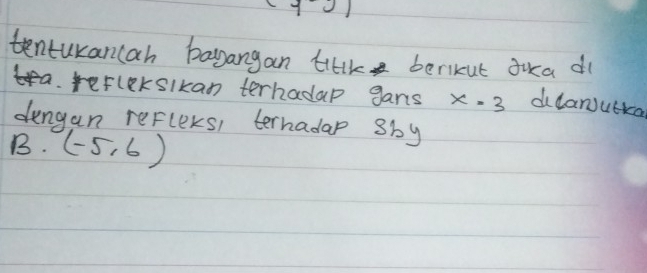 tentukanlah bayangan titik berikut jika di
a. refleksikan terhadap garis x = 3 dilanjutka
dengan refleksi terhadap sby
B. (-5,6)